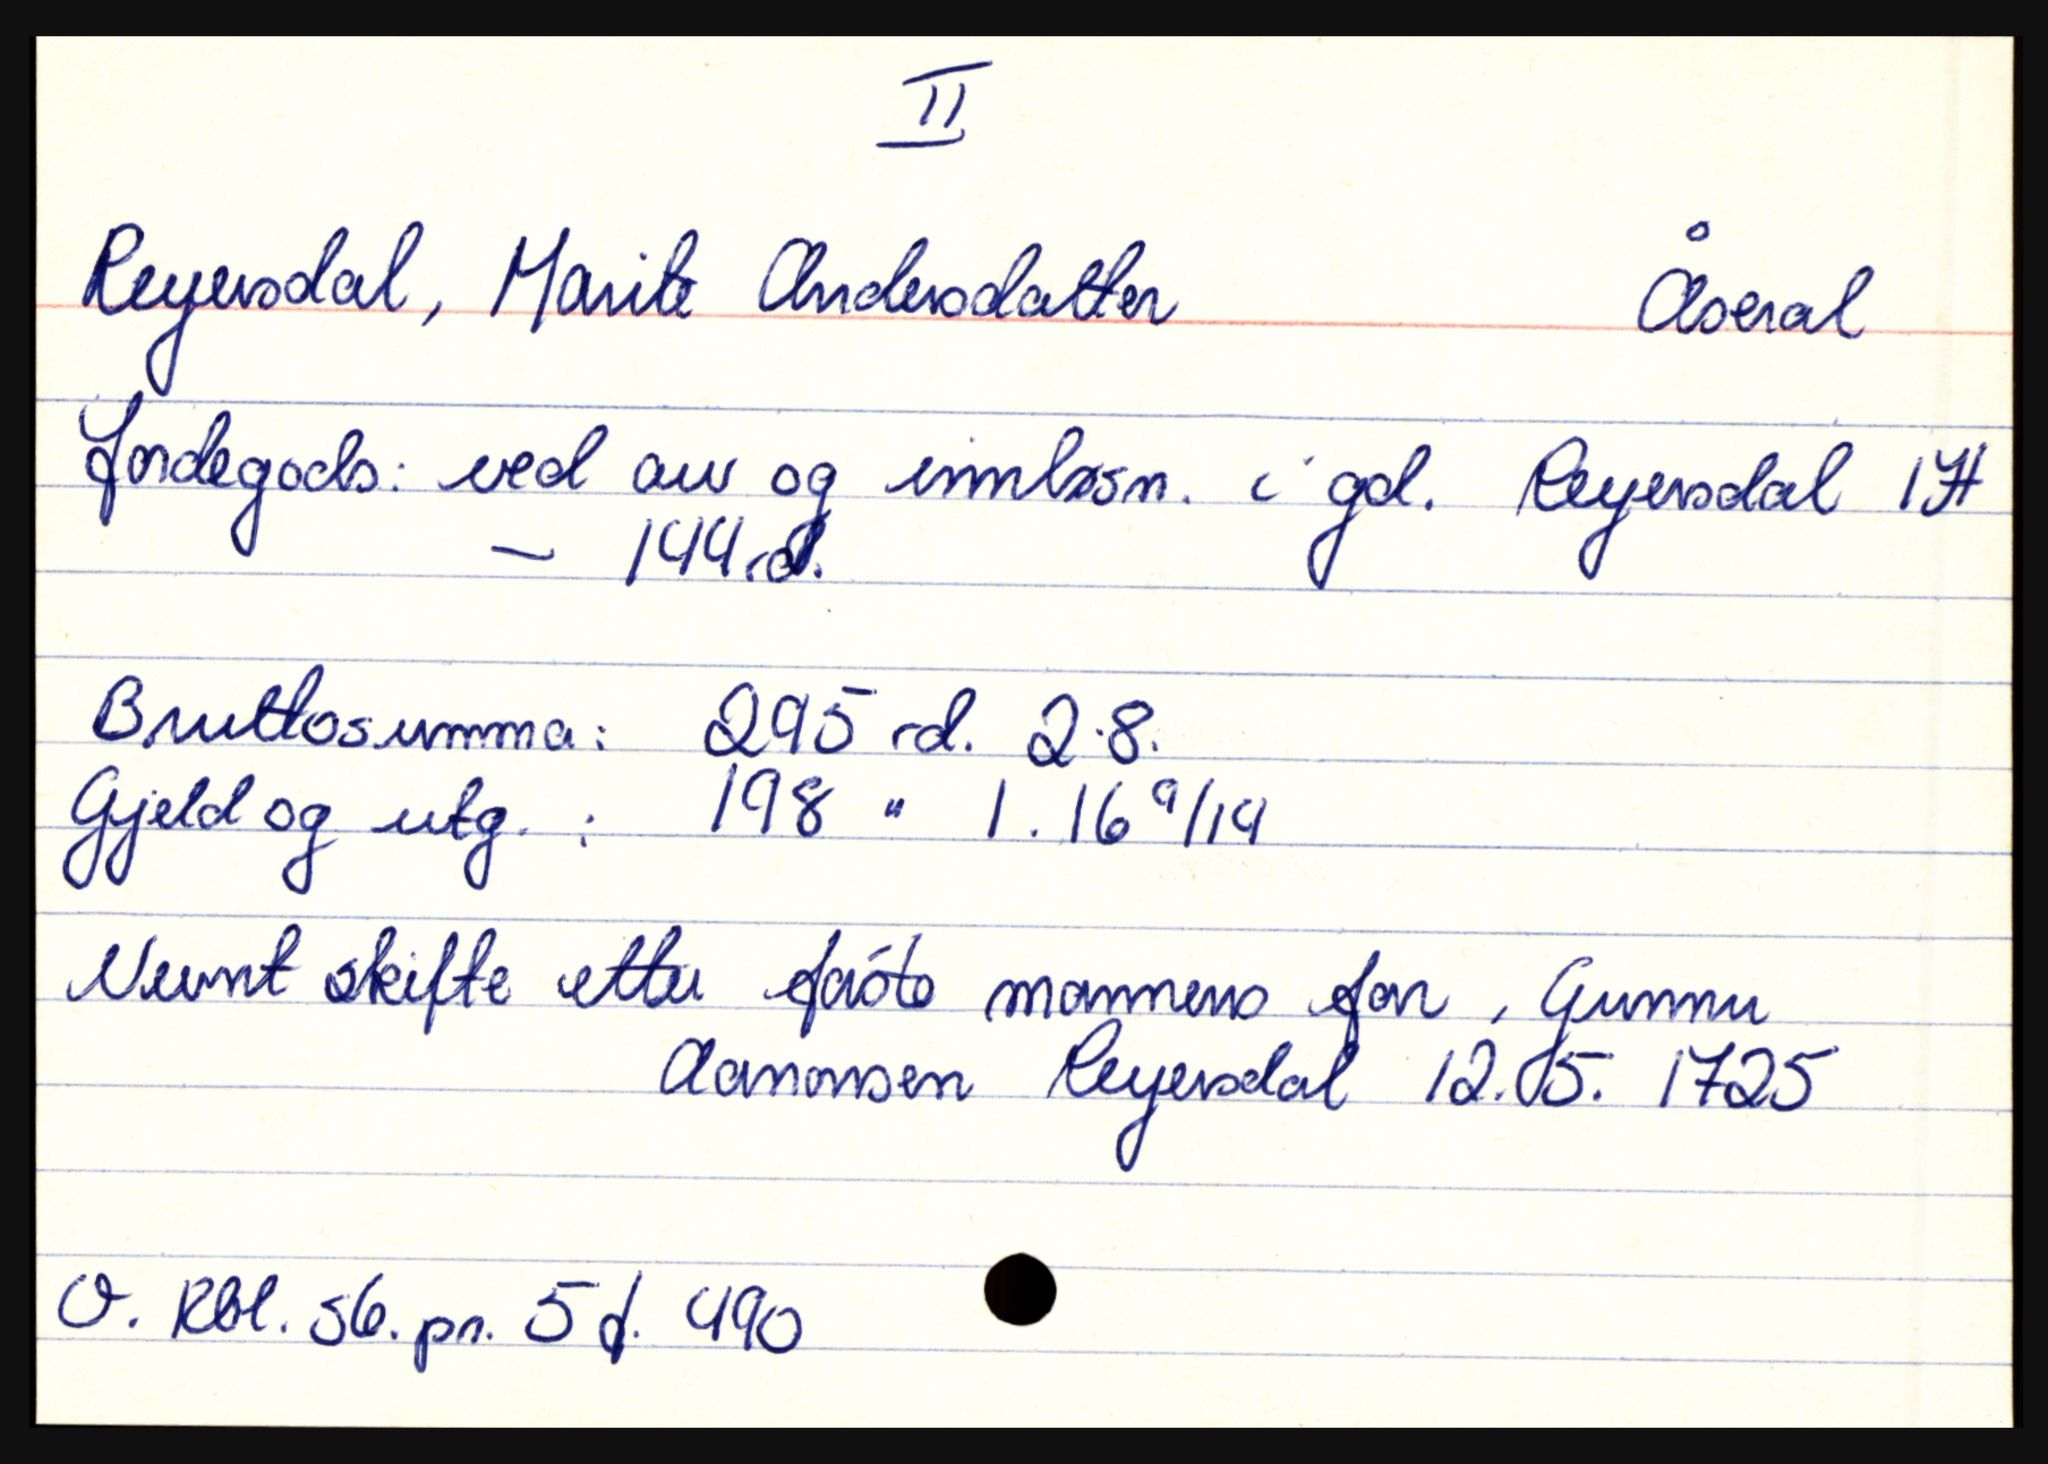 II
Reyersdal, Marite Andersdatter Åseral
Jordegods: ved arv og innløsn. i gd. Reyersdal 1 H
— 144 rd.
Bruttosumma: 295 rd. 2.8.
Gjeld og utg. : 198 " 1.16 9/14
Nevnt skifte etter første mannens far, Gunner
Aanonsen Reyersdal 12.05.1725
V. Rbl. s6. pr. 5 f. 490